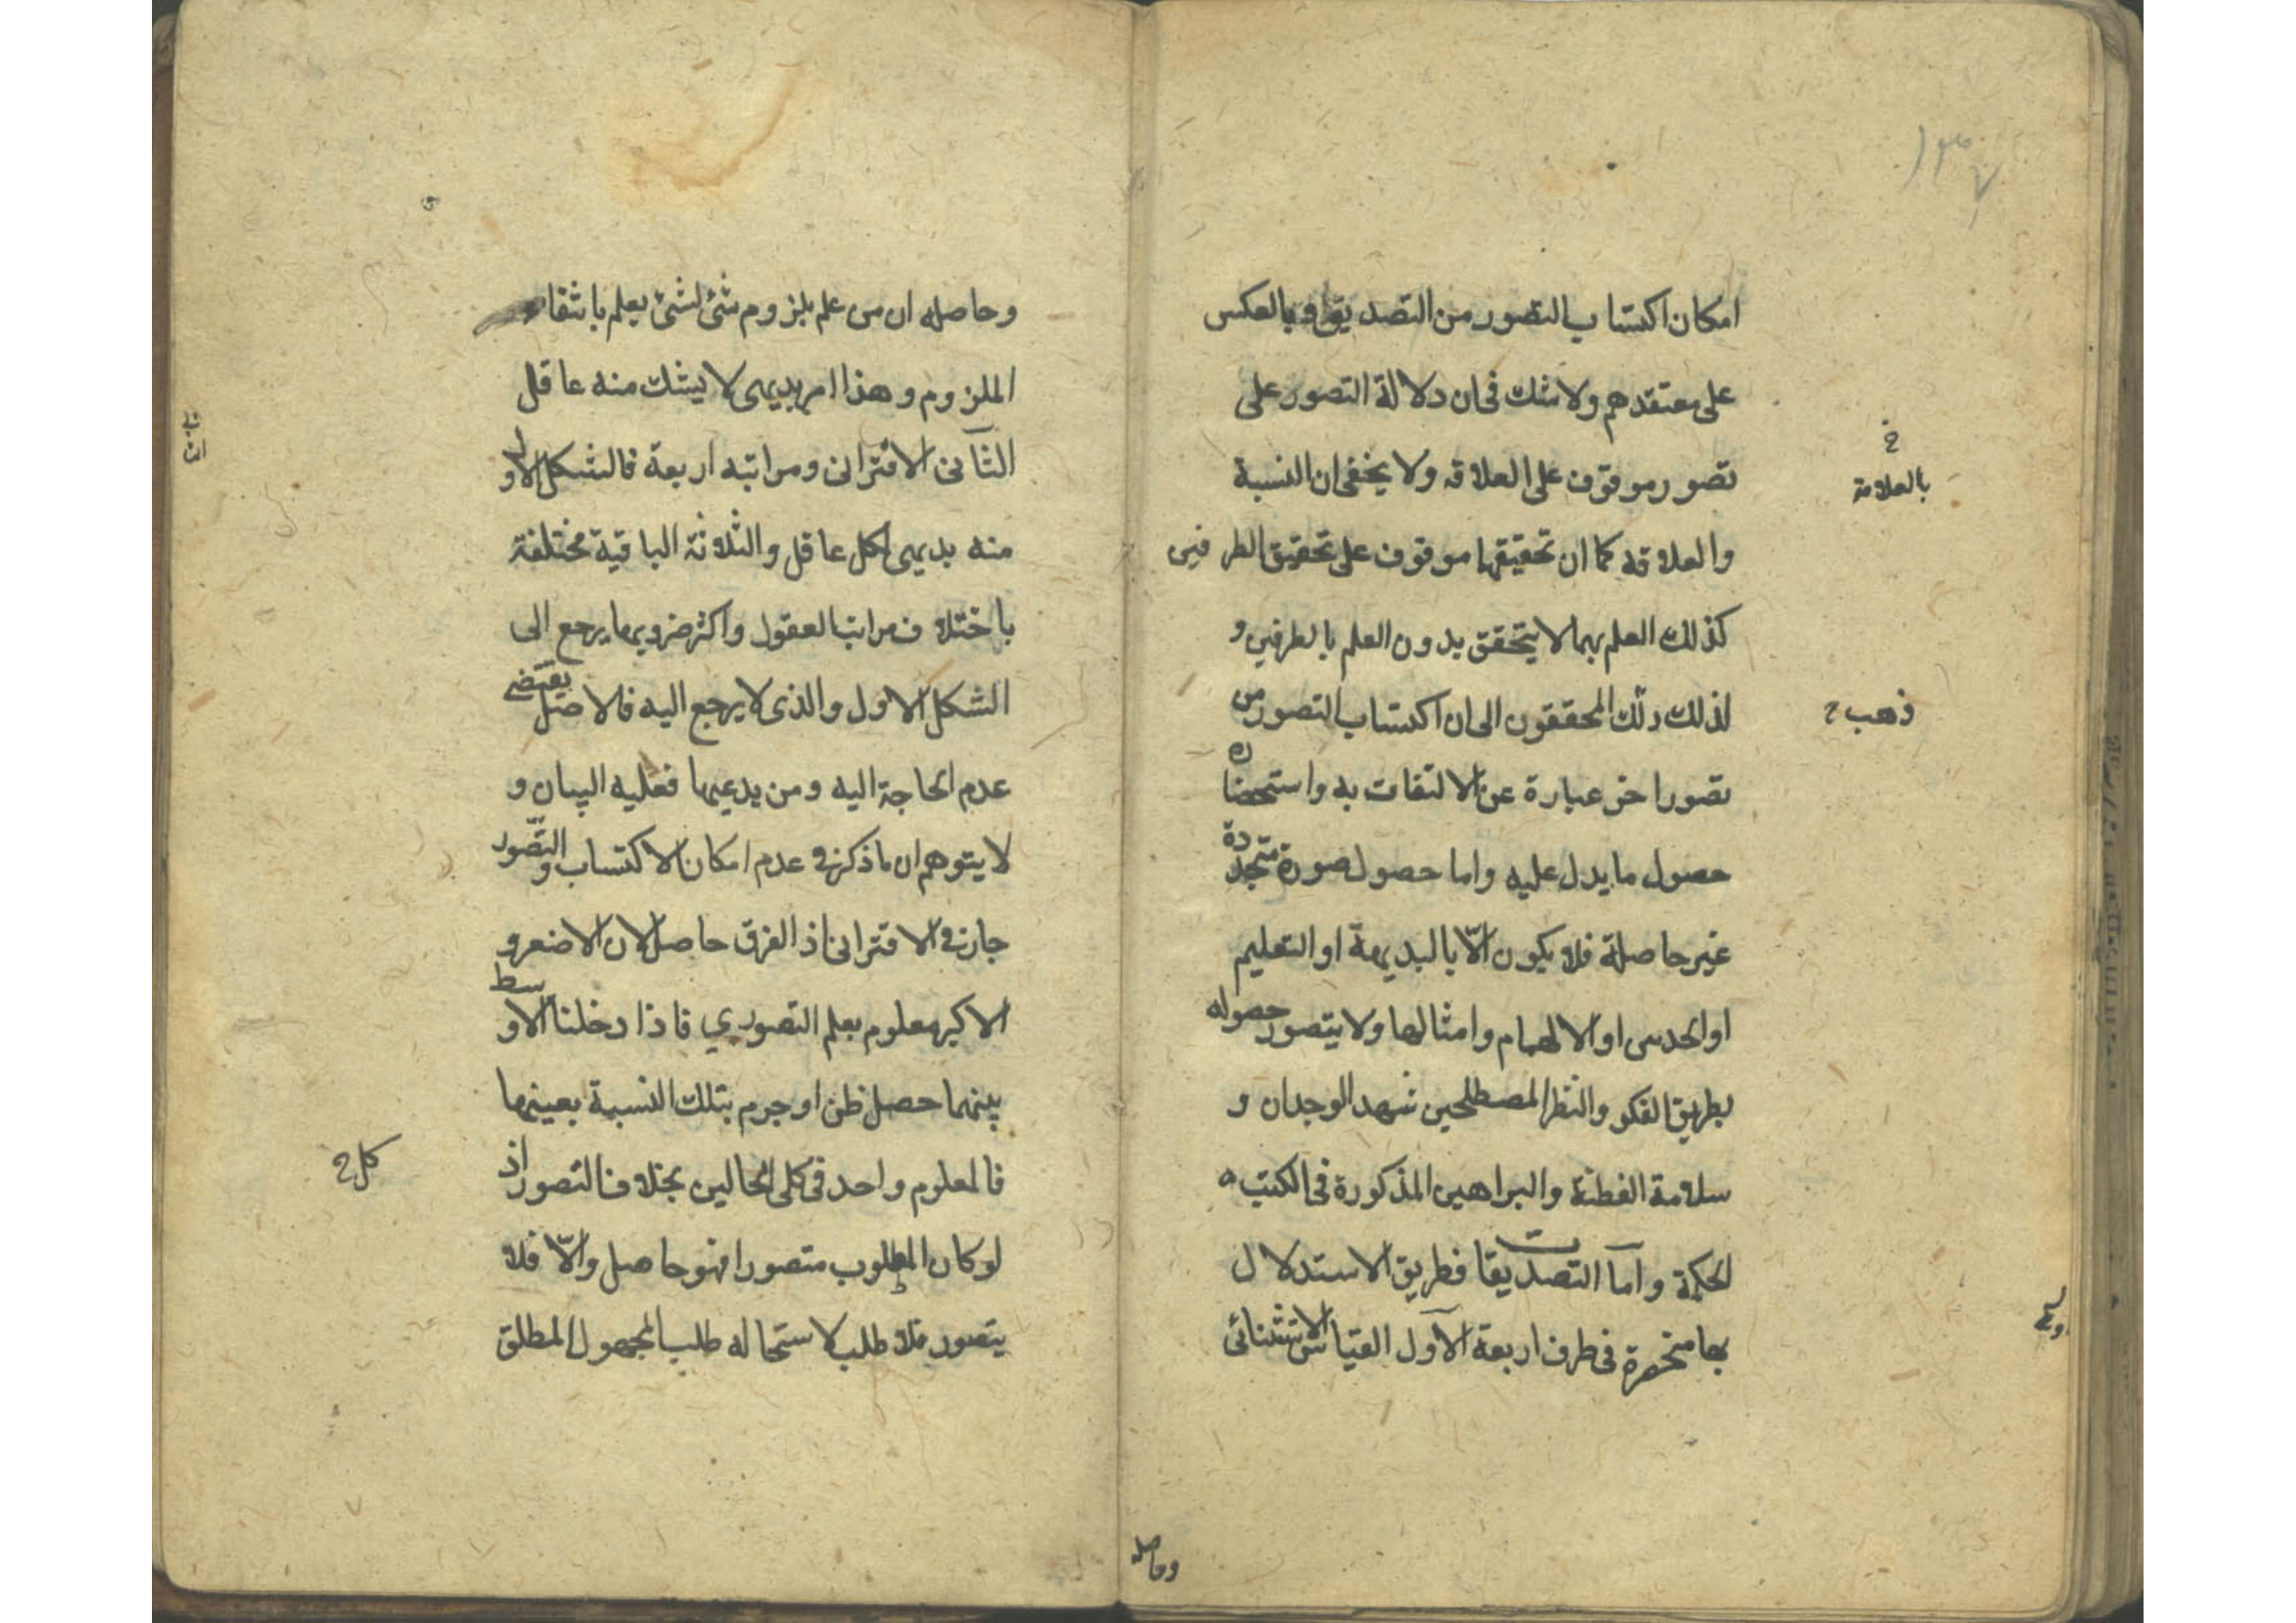 ١٣٧
امكان اكتساب التصور من التصديق وبالعكس
على معتقدهم ولا شك فى ان دلالة التصور على
تصور موقوف على العلاقه ولا يخفى ان النسبة
خ
بالعلامة
والعلاقه كما ان تحقيقها موقوف على تحقيق الطرفين
كذلك العلم بهما لا يتحقق بدون العلم بالطرفين و
لذلك المحققون الى ان اكتساب التصور من
ذهب ح
تصور اخر عبارة عن الالتفات به واستحضاره
حصول ما يدل عليه واما حصول صورة متجددة
غير حاصلة فلا يكون الّا بالبديهة او التعليم
او الحدس او الالهام وامثالها ولا يتصور حصوله
بطريق الفكر والنظر المصطلحين شهد الوجدان و
سلامة الفطنة والبراهين المذكورة فى الكتب
الحكمة وامّا التصديقات فطريق الاستدلال
بها منحصرة فى طرف اربعة الاول القياس الاستثنائى
وحاصله
وحاصله ان من علم بلزوم شئ لشئ يعلم بانتفاء
الملزوم وهذا امر بديهى لا يشك منه عاقل
الثانى الاقترانى ومراتبه اربعة فالشكل الاول
منه بديهى لكل عاقل والثلاثة الباقية مختلفة
باختلاف مراتب العقول واكثر ضرويها يرجع الى
الشكل الاول والذى لا يرجع اليه فالاصل يقتضى
عدم الحاجة اليه ومن يدعيها فعليه البيان و
لا يتوهم ان ما ذكر فى عدم امكان الاكتساب والتصور
جار فى الاقترانى اذ الفرق حاصل لان الاصغر و
الاكبر معلوم بعلم التصوري فاذا دخلنا الاوسط
بينهما حصل ظن او جزم بتلك النسبة بعينها
فالمعلوم واحد فى كلى الحالين بخلاف التصور اذ
كل ح
لو كان المطلوب متصورا فهو حاصل والّا فلا
يتصور فلا طلب لاستحاله طلب المجهول المطلق